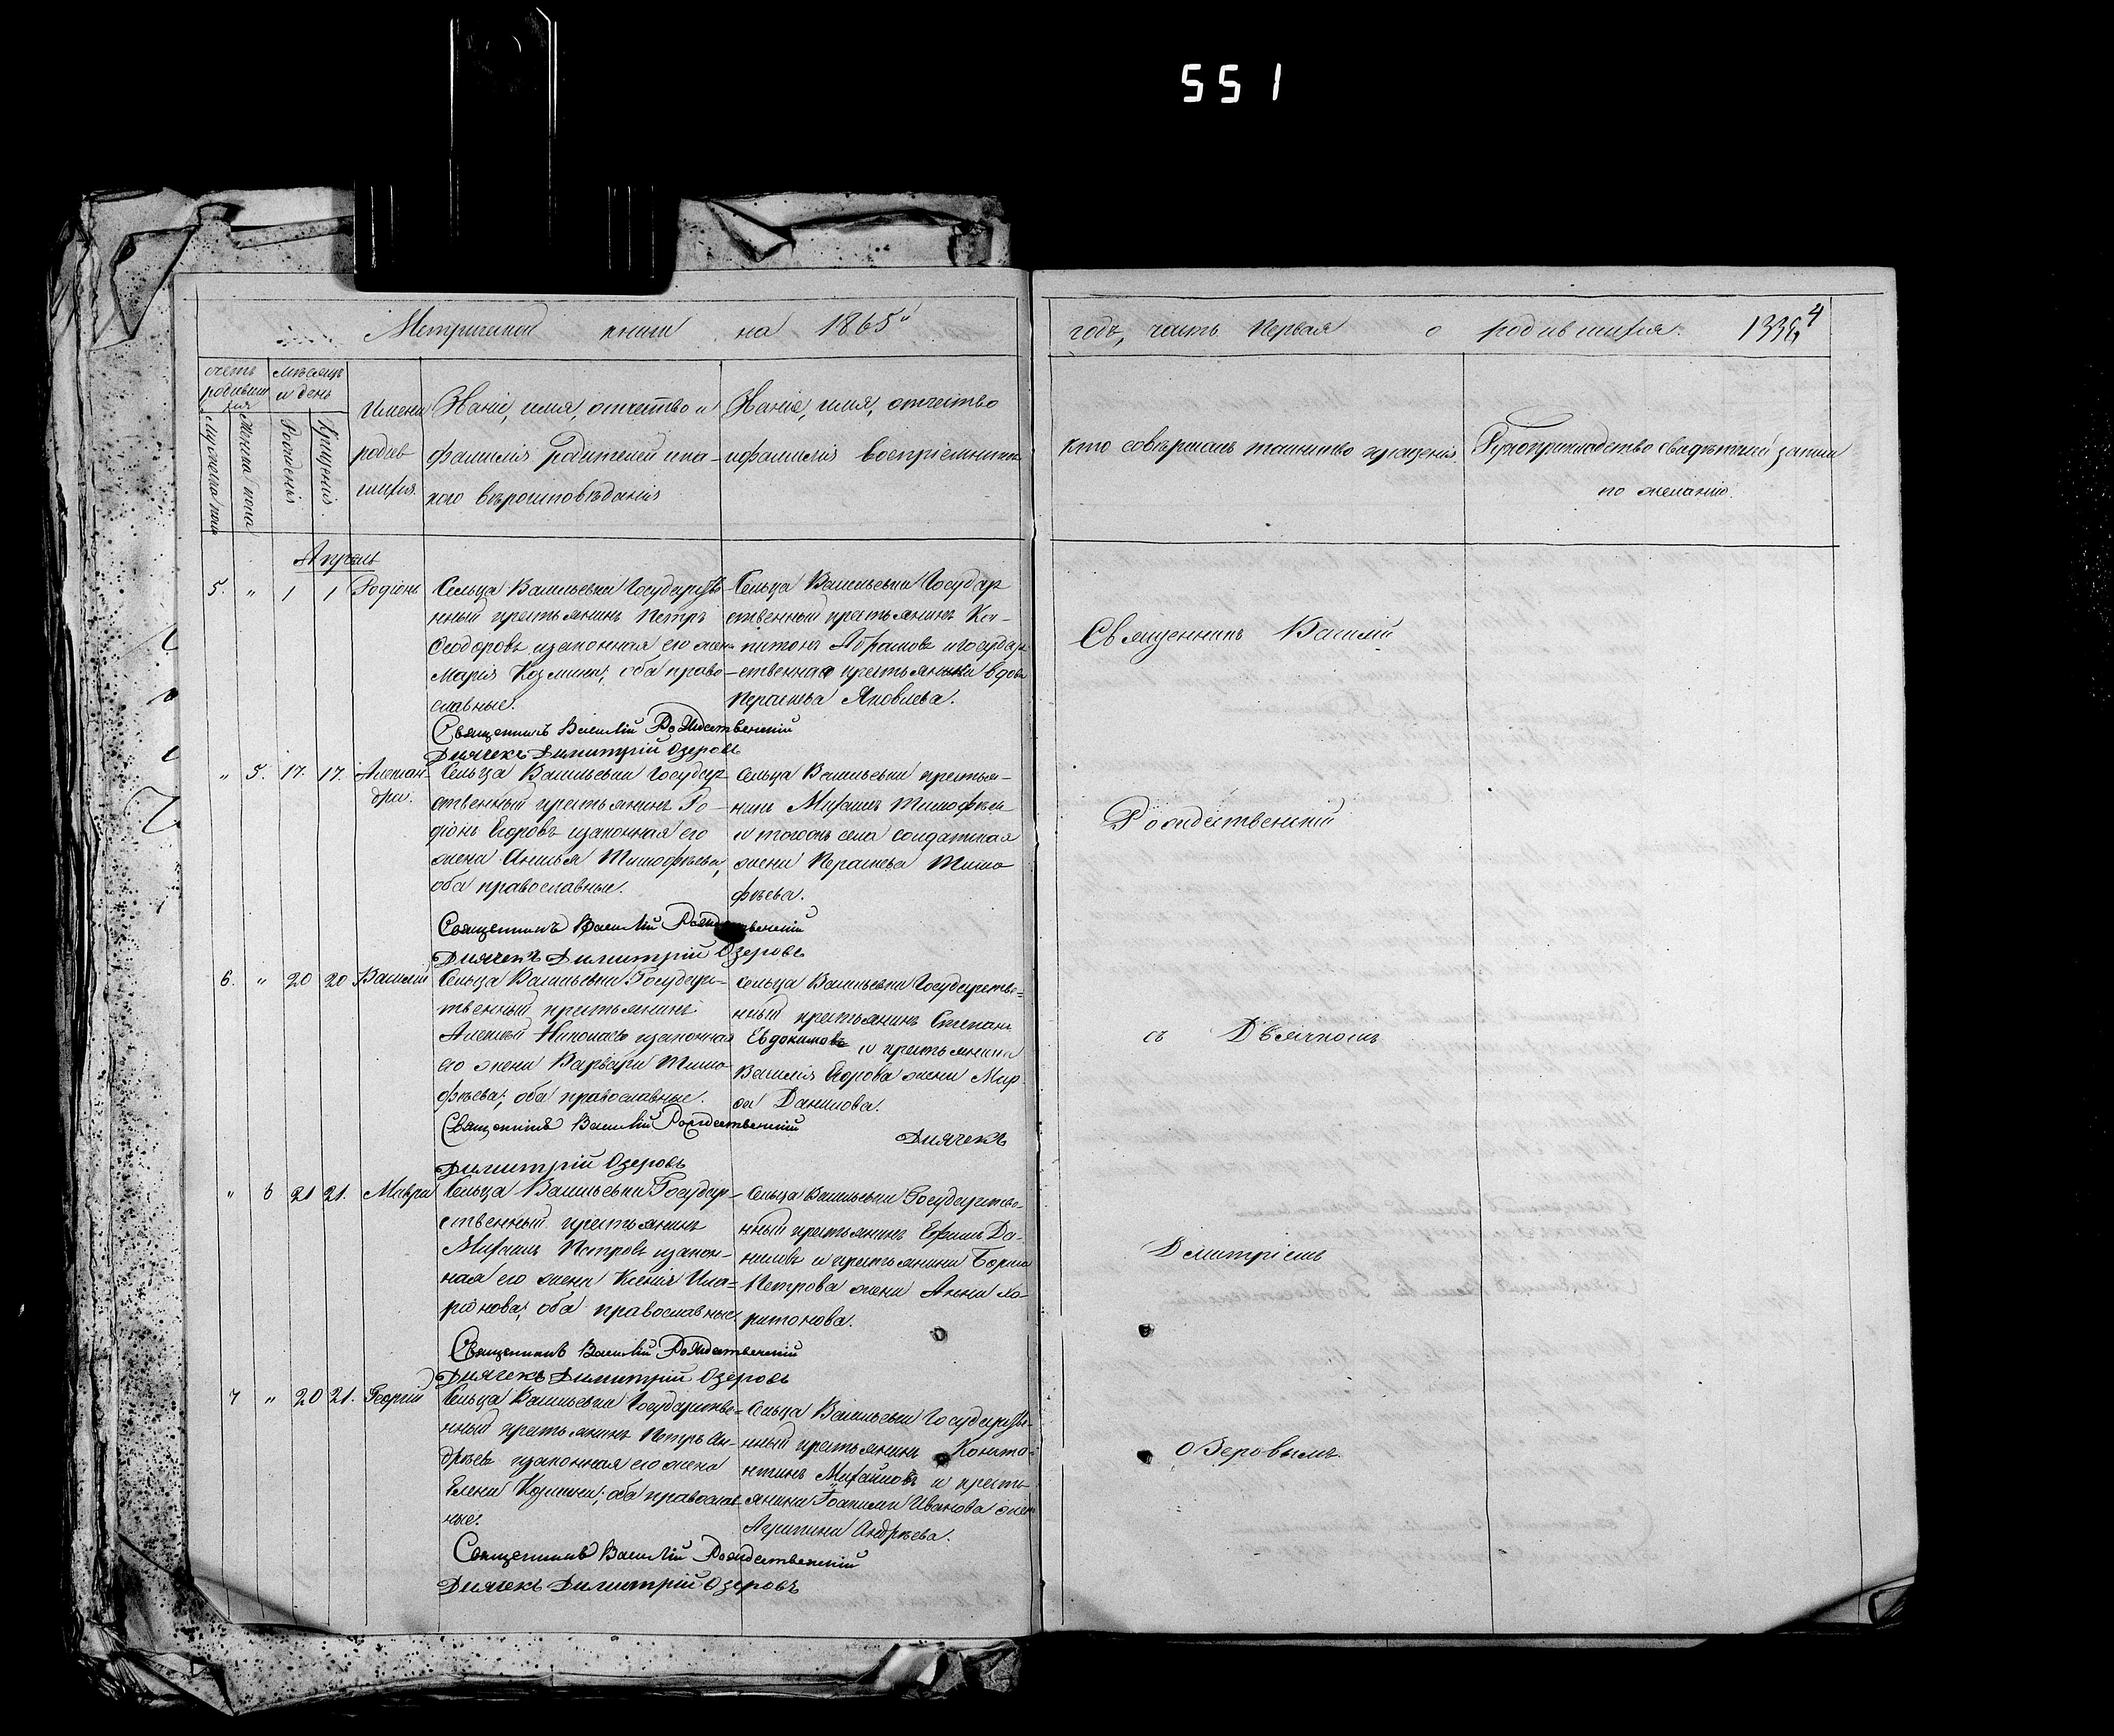 551
Метрической книги на 1865й
годъ, часть первая о родившихся. 4
счетъ родившихся
Мужеска пола
Женска пола
мѣсяцъ и день
Рожденія
Крещенія
Имена родившихся.
Званіе, имя, отчество и
фамилія родителей и ка-
кого вѣроисповѣданія
Званіе, имя, отчество
и фамилія воспріемниковъ
кто совершалъ таинство крещенія.
Рукоприкладство свидѣтелей записи
по желанію.
Апрѣль
5. " 1 1 Родіонъ
Сельца Васильевки Государстве
нный крестьянинъ Петръ
Ѳеодоровъ и законная его жена
Марія Козмина; оба право-
славные.
Сельца Васильевки Государ
ственный крестьянинъ Ка-
питонъ Абрамовъ и государ
ственная крестьянка вдова
Перасковья Яковлева.
Священникъ Василій Рождественскій
Дьячекъ Димитрій Озеровъ
" 5. 17. 17. Алексан-
дра.
Сельца Васильевки Государ
ственный крестьянинъ Ро-
діонъ Егоровъ и законная его
жена Анисья Тимофѣева,
оба православные.
Сельца Васильевки крестья-
нинъ Михаилъ Тимофѣевъ
и тогожъ села солдатская
жена Перасковья Тимо
фѣева.
Священникъ Василій Рождественскій
Дьячекъ Димитрій Озеровъ
6. " 20 20 Василій
Сельца Васильевки Государс-
твенный крестьянинъ
Алексѣй Николаевъ и законная
его жена Варвара Тимо
фѣева; оба православные.
Сельца Васильевки Государстве=
нный крестьянинъ Степанъ
Евдокимовъ и крестьянина
Василія Егорова жена Мар
ѳа Данилова.
Священникъ Василій Рождественскій
Дьячекъ
Димитрій Озеровъ
" 6 21 21. Мавра
Сельца Васильевки Государ-
ственный крестьянинъ
Михаилъ Петровъ и закон-
ная его жена Ксенія Ила=
ріонова; оба православные.
Сельца Васильевки Государстве-
нный крестьянинъ Ефимъ Да-
ниловъ и крестьянина Бориса
Петрова жена Анна Ха-
ритонова.
Священникъ Василій Рождественскій
Дьячекъ Димитрій Озеровъ
7 " 20 21. Георгій
Сельца Васильевки Государстве=
нный крестьянинъ Петръ Ан-
дрѣевъ и законная его жена
Елена Козмина; оба православ
ные.
Сельца Васильевки Государстве-
нный крестьянинъ Конста-
нтинъ Михайловъ и кресть-
янина Иванова жена
Агрипина Андрѣева.
Священникъ Василій Рождественскій
Дьячекъ Димитрій Озеровъ
Священникъ Василій
Рождественскій
съ Дьячкомъ
Дмитріемъ
Озеровымъ.